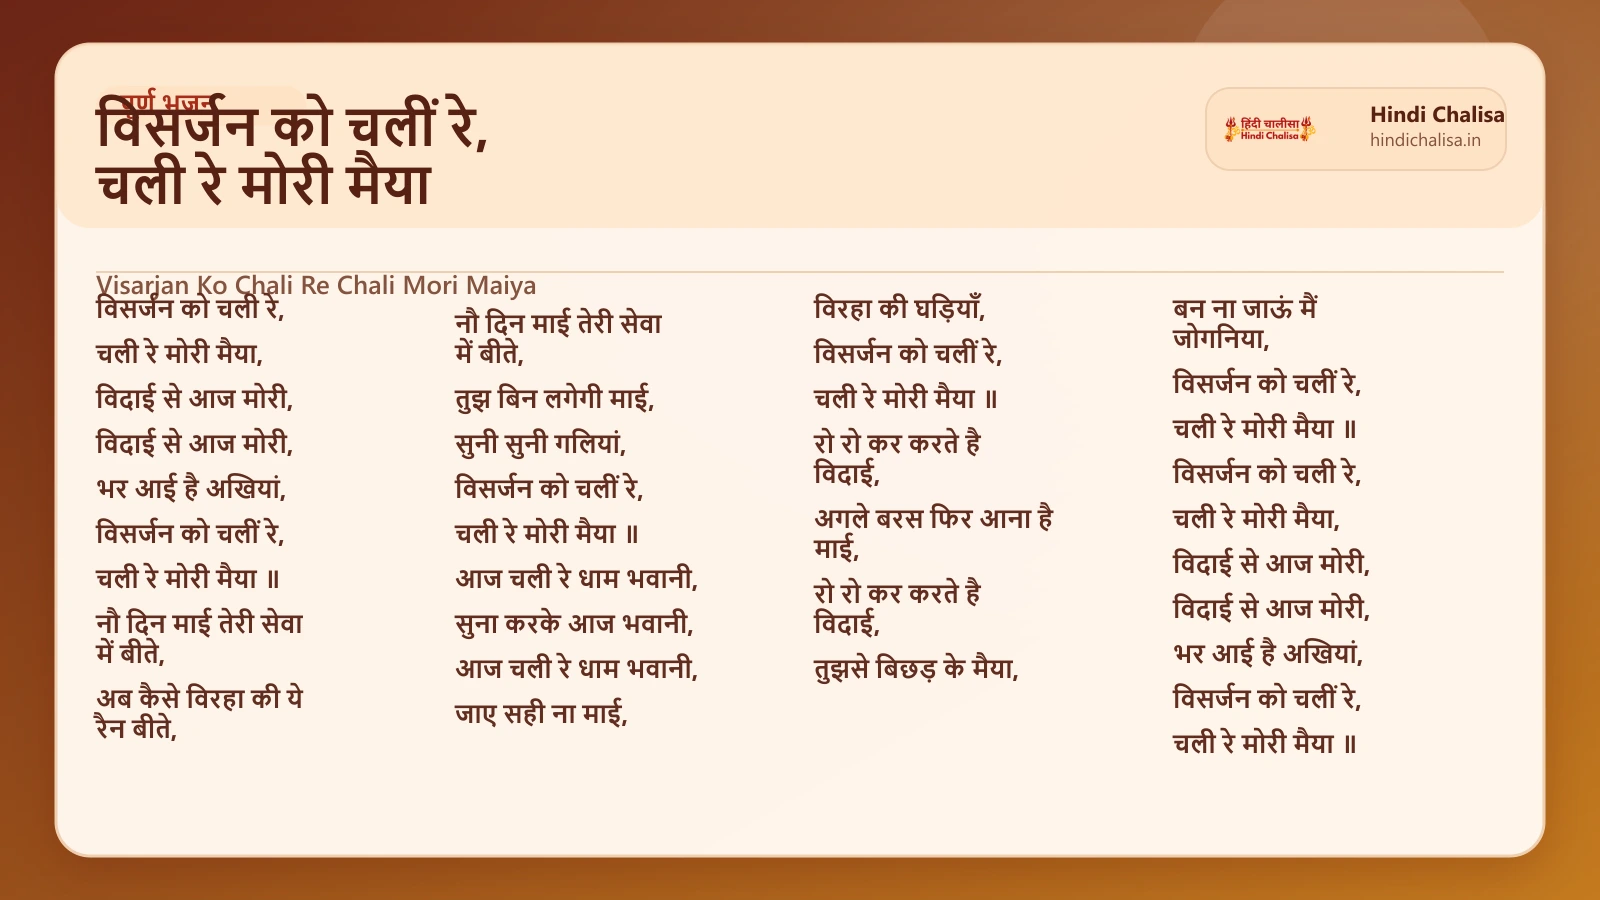 पूर्ण भजन
विसर्जन को चलीं रे,
चली रे मोरी मैया
हिंदी चालीसा
Hindi Chalisa
Hindi Chalisa
hindichalisa.in
Visarjan Ko Chali Re Chali Mori Maiya
विसर्जन को चली रे,
चली रे मोरी मैया,
विदाई से आज मोरी,
विदाई से आज मोरी,
भर आई है अखियां,
विसर्जन को चलीं रे,
चली रे मोरी मैया ॥
नौ दिन माई तेरी सेवा
में बीते,
अब कैसे विरहा की ये
रैन बीते,
नौ दिन माई तेरी सेवा
में बीते,
तुझ बिन लगेगी माई,
सुनी सुनी गलियां,
विसर्जन को चलीं रे,
चली रे मोरी मैया ॥
आज चली रे धाम भवानी,
सुना करके आज भवानी,
आज चली रे धाम भवानी,
जाए सही ना माई,
विरहा की घड़ियाँ,
विसर्जन को चलीं रे,
चली रे मोरी मैया ॥
रो रो कर करते है
विदाई,
अगले बरस फिर आना है
माई,
रो रो कर करते है
विदाई,
तुझसे बिछड़ के मैया,
बन ना जाऊं मैं
जोगनिया,
विसर्जन को चलीं रे,
चली रे मोरी मैया ॥
विसर्जन को चली रे,
चली रे मोरी मैया,
विदाई से आज मोरी,
विदाई से आज मोरी,
भर आई है अखियां,
विसर्जन को चलीं रे,
चली रे मोरी मैया ॥